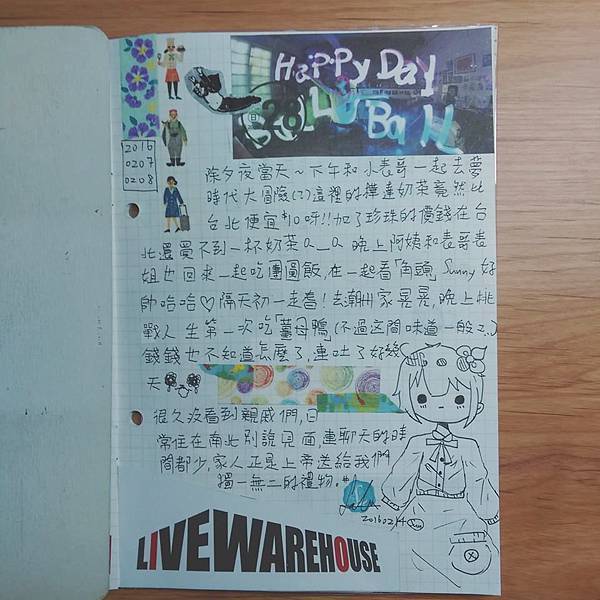 Happy Day
2016
0207
0208
除夕夜當天～下午和小表哥一起去夢
時代大冒險(?)這裡的樺達奶茶竟然比
台北便宜$10呀!!加了珍珠的價錢在台
北還買不到一杯奶茶Q__Q 晚上阿姨和表哥表
姐也回來一起吃團圓飯,在一起看「角頭」Sunny好
帥哈哈♡隔天初一走春!去潮州家晃晃,晚上挑
戰人生第一次吃「薑母鴨」(不過这間味道一般
錢錢也不知道怎麼了,連吐了好幾
天
很久沒看到親戚們,日
常住在南北別說見面,連聊天的時
間都少,家人正是上帝送給我們
獨一無二的禮物.
20160214
LIVEWAREHOUSE